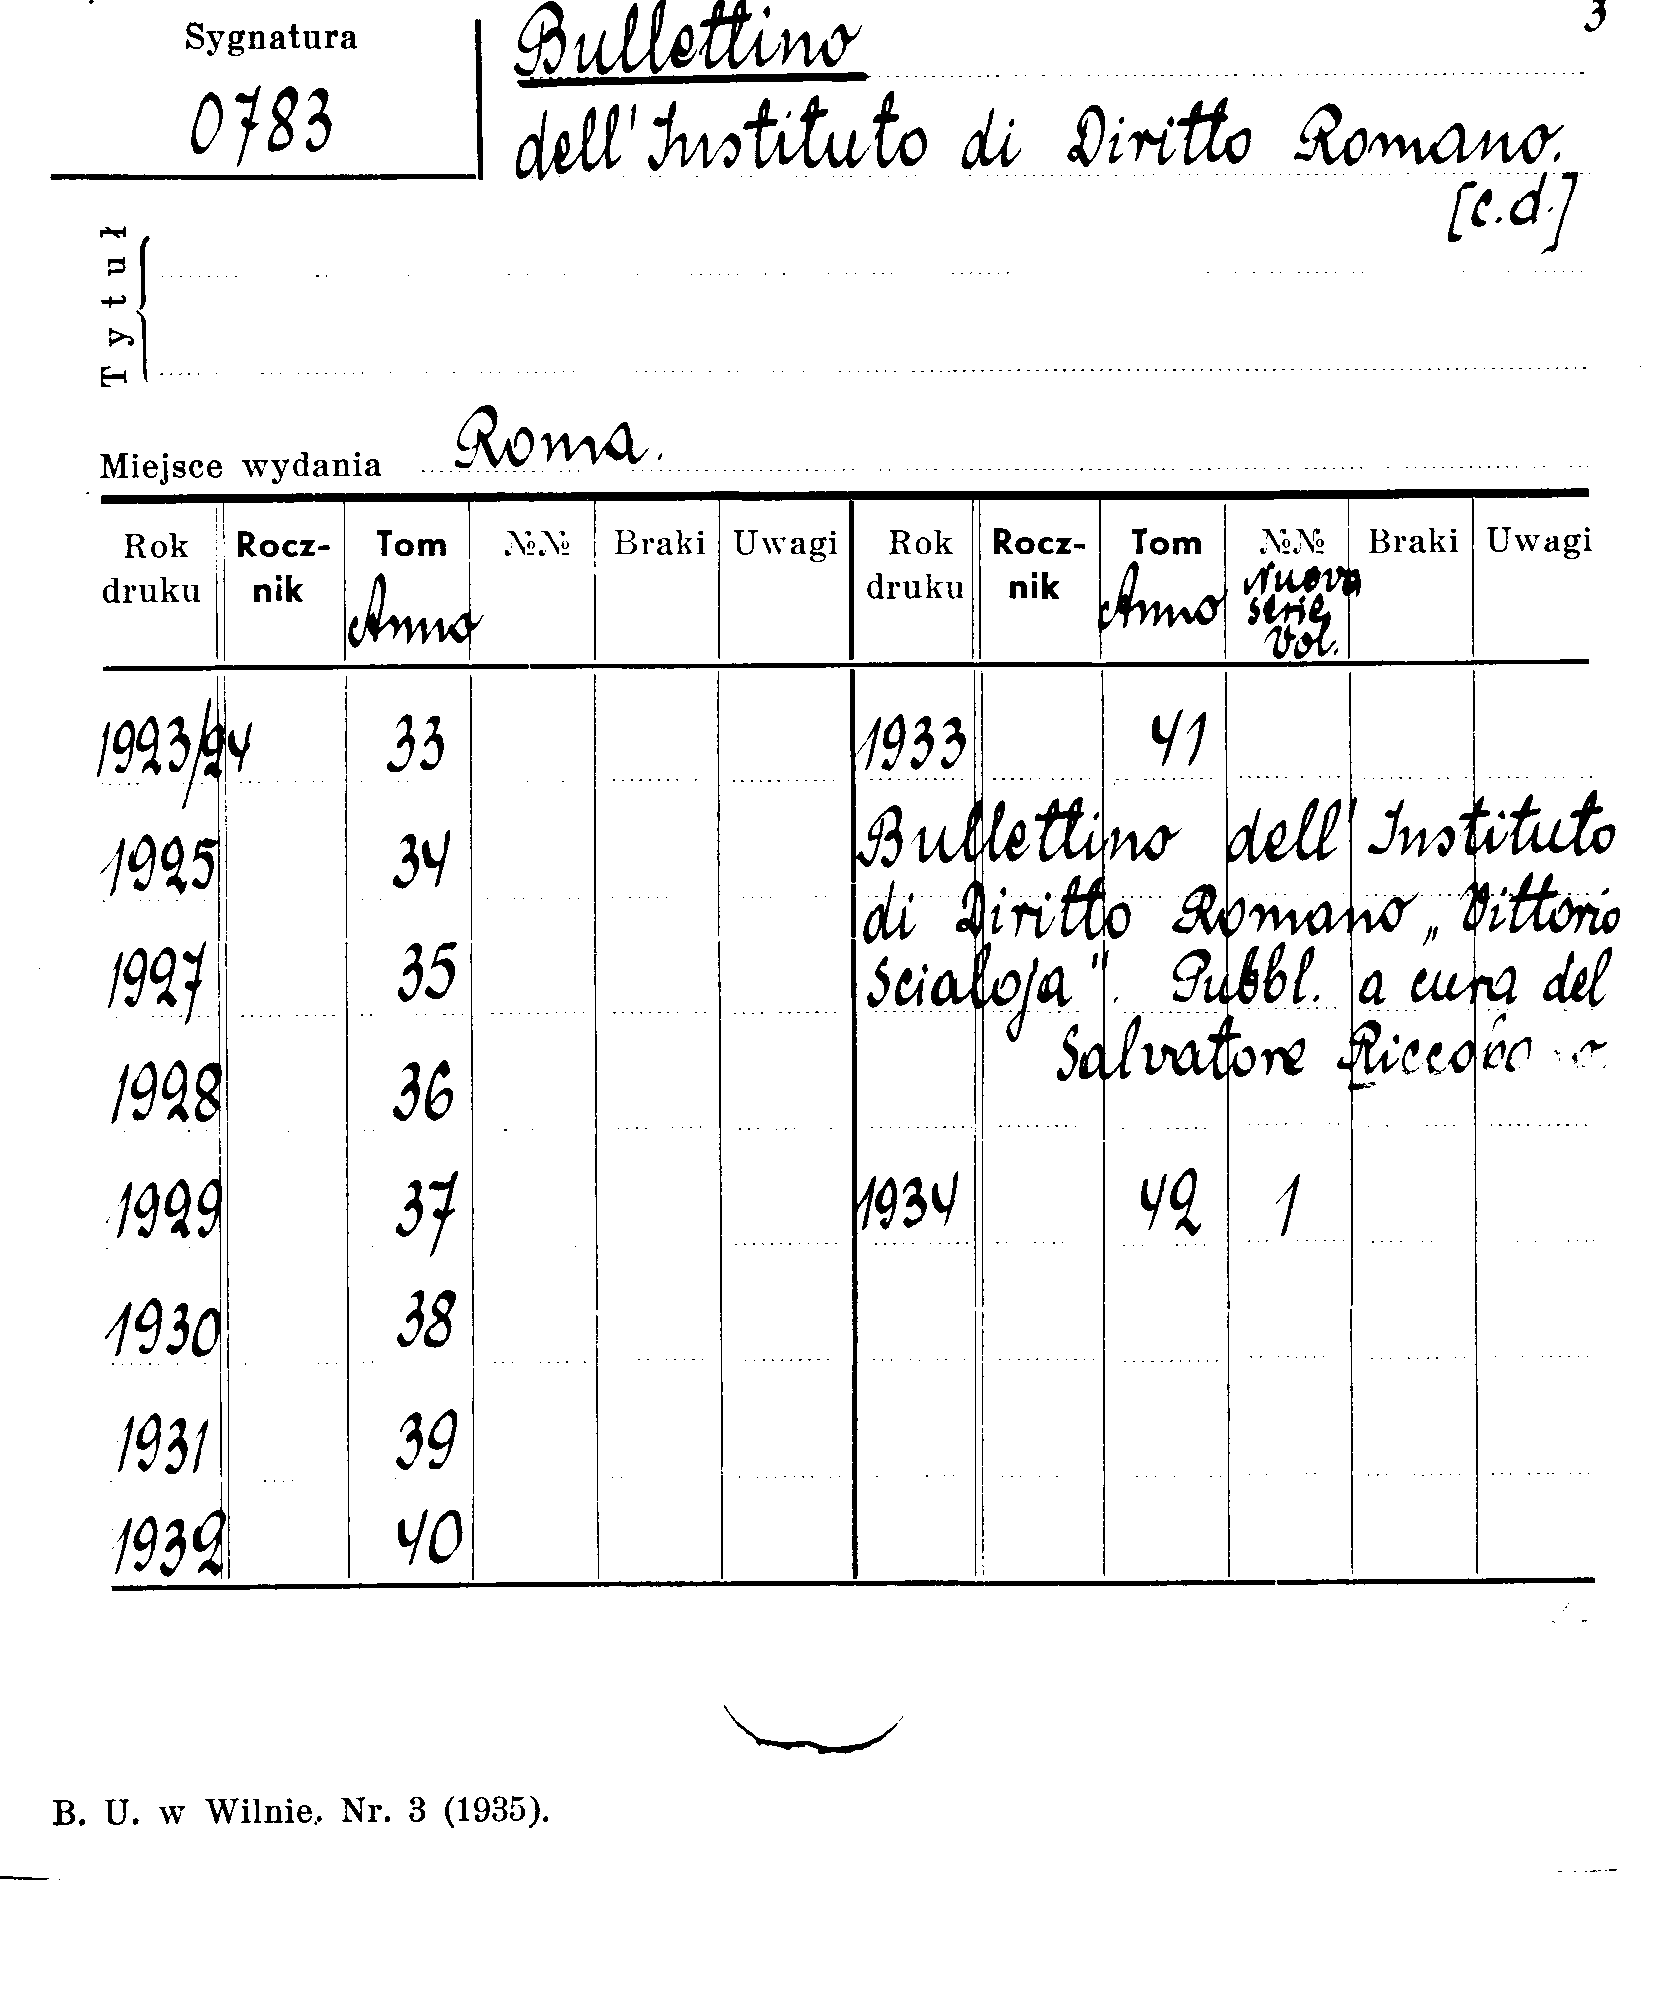 3
Sygnatura
0783
Bullettino
dell' Instituto di Diritto Romano.
[c.d.]
Tytuł
Miejsce wydania Roma.
Rok druku Rocz-nik Tom Anno №№ Braki Uwagi Rok druku Rocz-nik Tom Anno №№ Nuova serie Vol. Braki Uwagi
1923/24 33 1933 41
Bullettino dell' Instituto
1925 34
di Diritto Romano „Vittorio
1927 35
Scialoja". Pubbl. a cura del
Salvatore Riccobono
1928 36
1929 37 1934 42 1
1930 38
1931 39
1932 40
B. U. w Wilnie. Nr. 3 (1935).